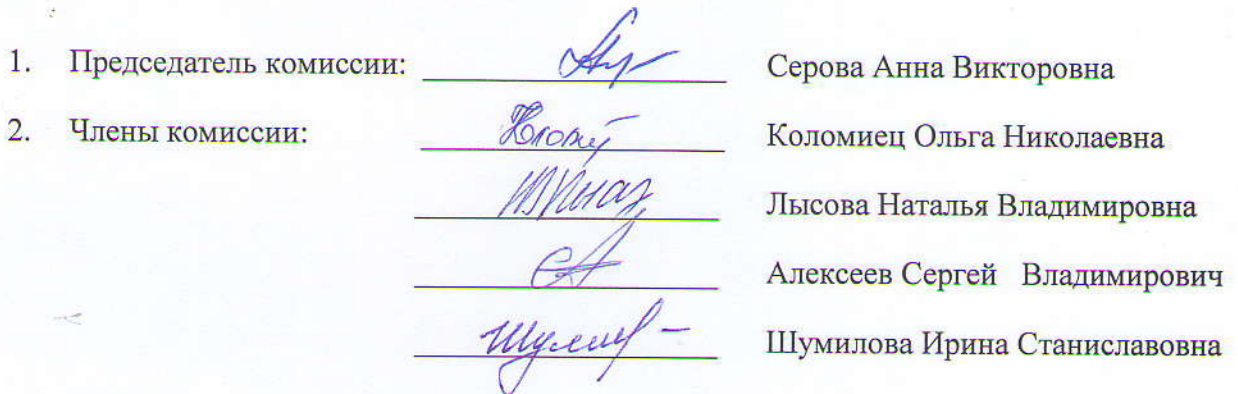 1. Председатель комиссии: Серова Анна Викторовна
2. Члены комиссии: Коломиец Ольга Николаевна
Лысова Наталья Владимировна
Алексеев Сергей Владимирович
Шумилова Ирина Станиславовна